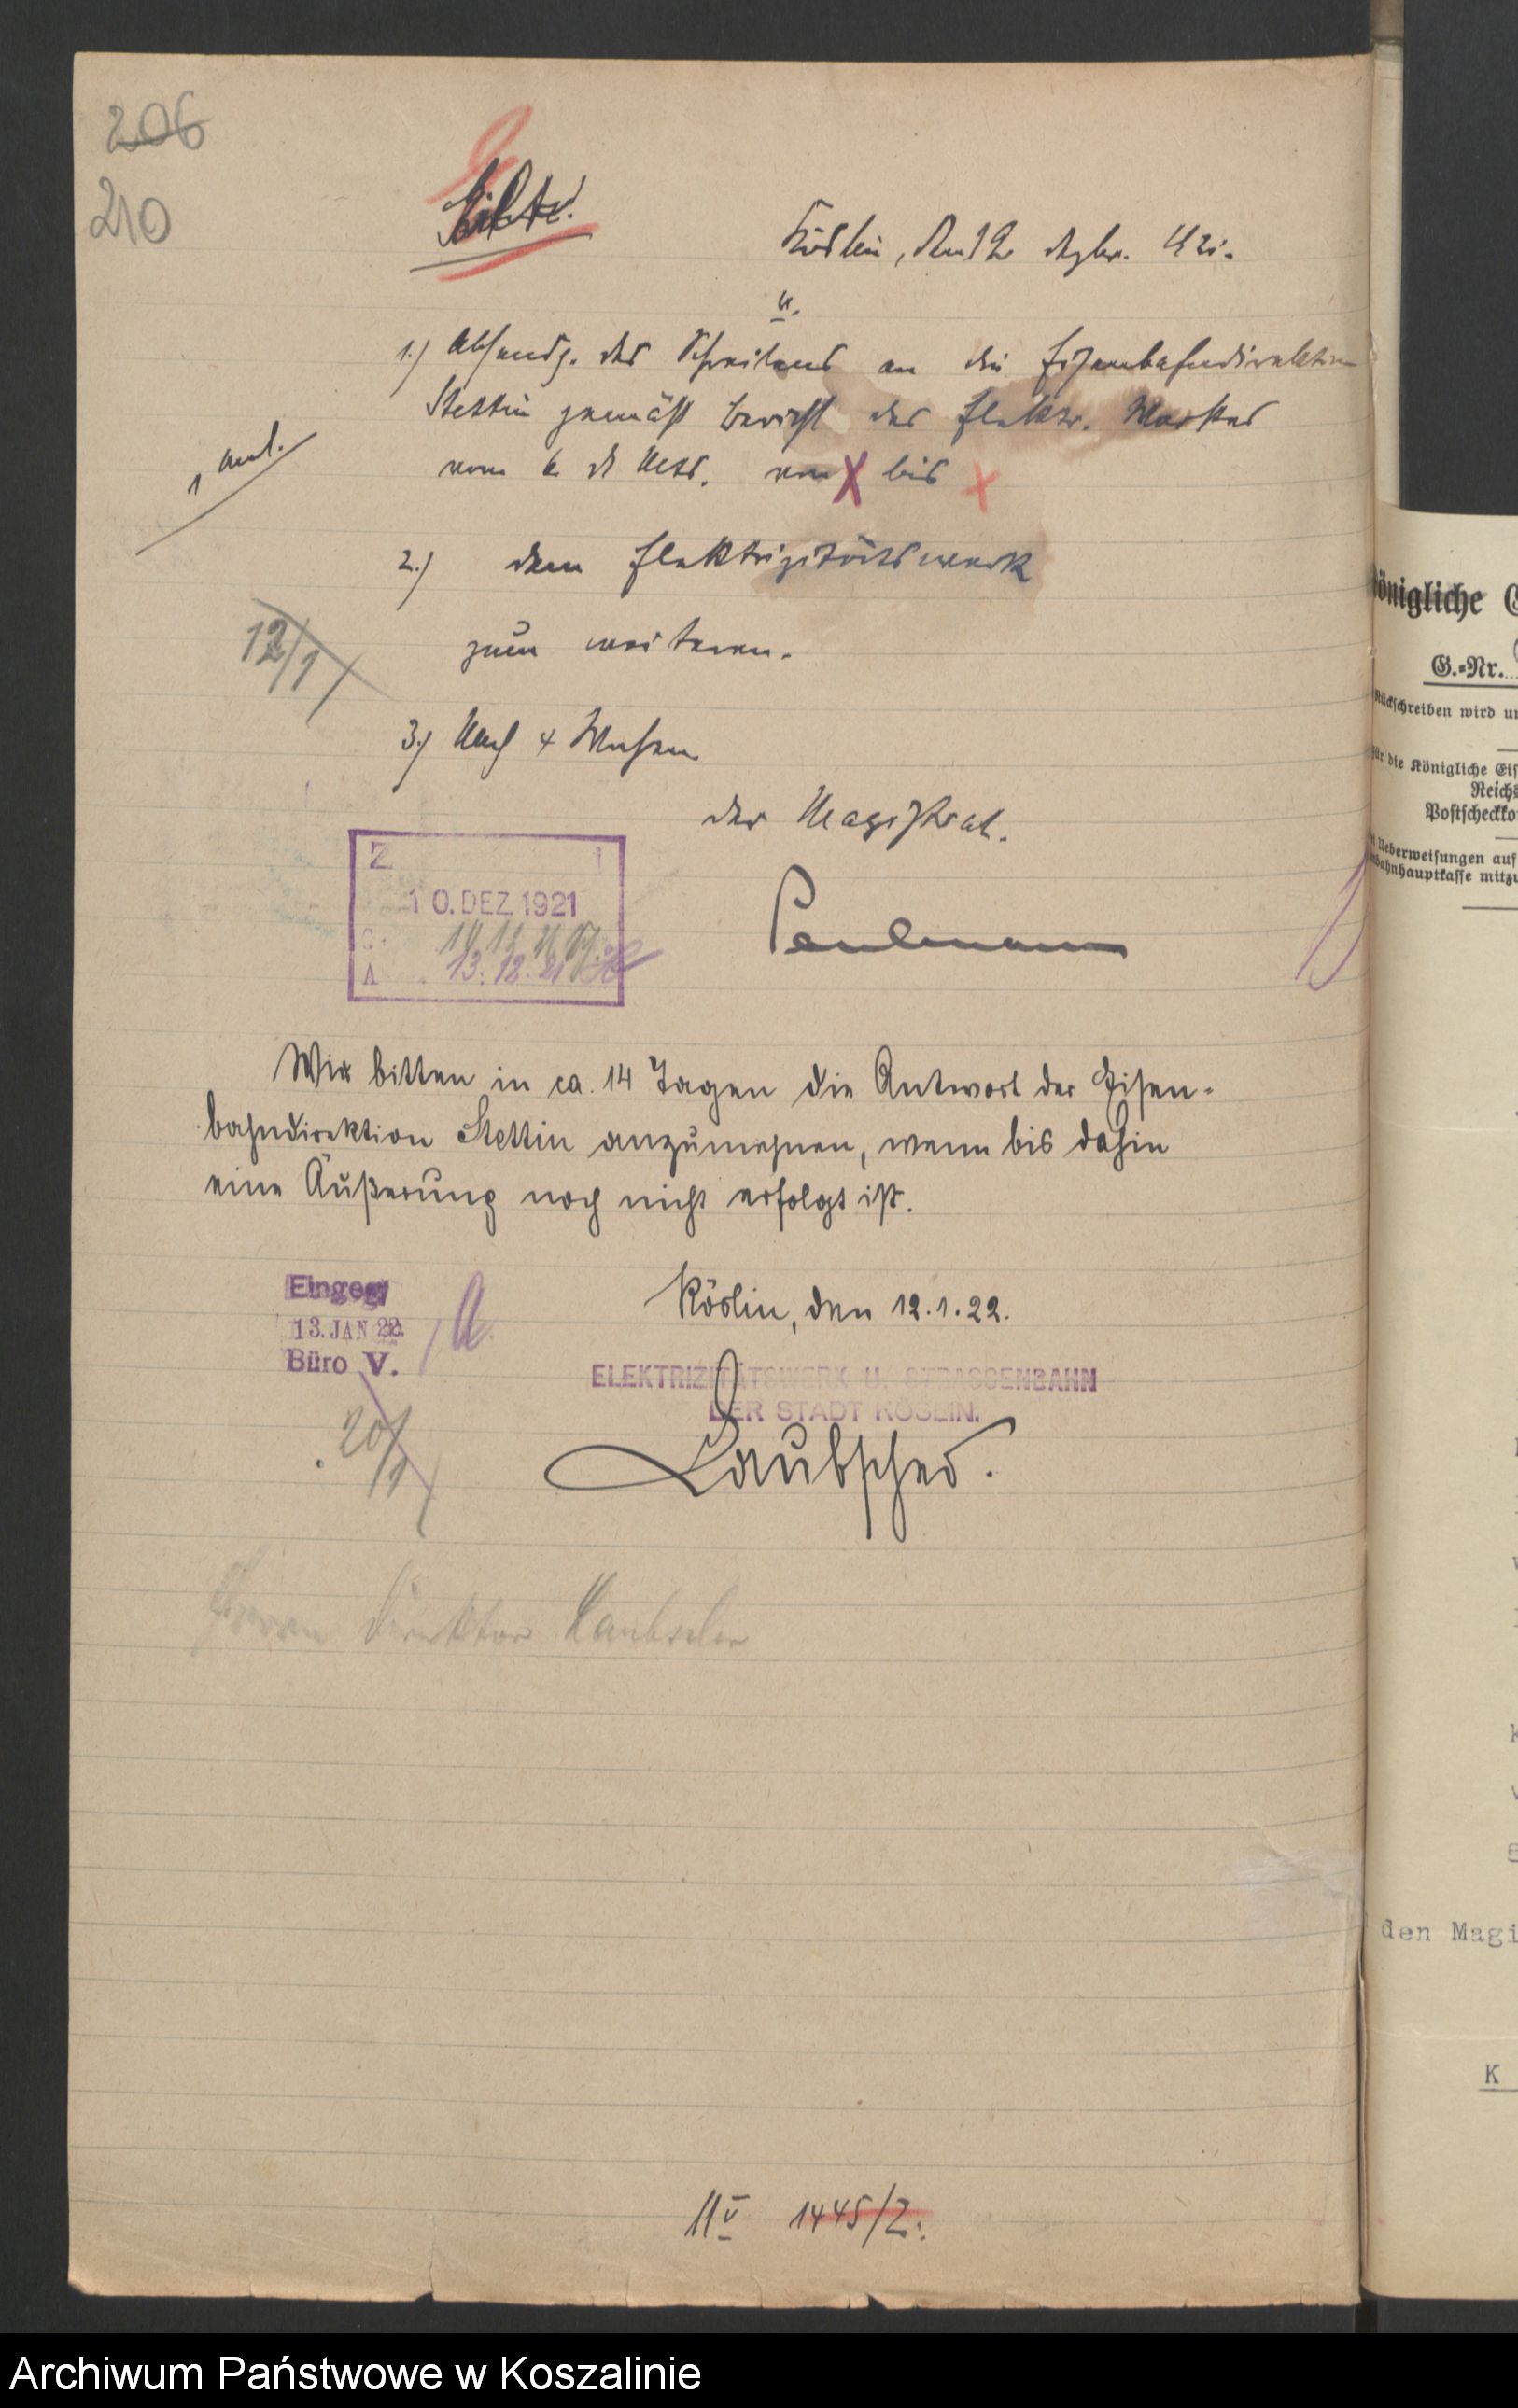 206
210
Eilt.
Köslin, den 12 Dezbr. 1921.
U.
1.) Absendg. des Schreibens an die Eisenbahndirektion
Stettin gemäß Bericht des Elektr. Werkes
vom 6. d. Mts. von X bis X
1 Anl.
2.) dem Elektrizitätswerk
zum weiteren.
12/1
3.) Nach 4 Wochen
Der Magistrat.
Z
10. DEZ. 1921
A 13.12.21
Wir bitten in ca. 14 Tagen die Antwort der Eisen-
bahndirektion Stettin anzumahnen, wenn bis dahin
eine Äußerung noch nicht erfolgt ist.
Köslin, den 12.1.22.
Eingeg
13. JAN 22
Büro V.
ELEKTRIZITÄTSWERK U. STRASSENBAHN
DER STADT KÖSLIN.
Laubscher.
20/1
Herrn Direktor Laubscher
II V 1445/2.
Königliche
G.-Nr.
Rückschreiben wird
für die Königliche Eis
Reichs
Postscheckko
Ueberweisungen auf
bahnhauptkasse mitzu
den Magi
K
Archiwum Państwowe w Koszalinie